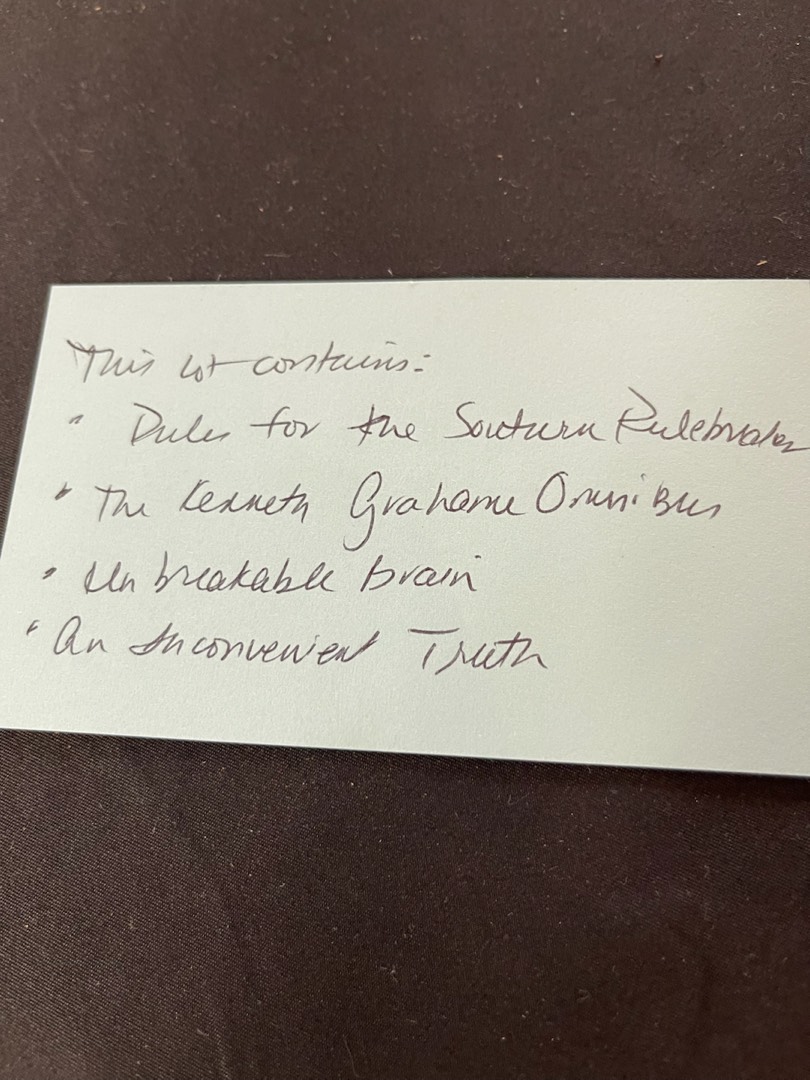 This lot contains:
• Rules for the Southern Rulebreaker
• The Kenneth Grahame Omnibus
• Unbreakable Brain
• An Inconvenient Truth